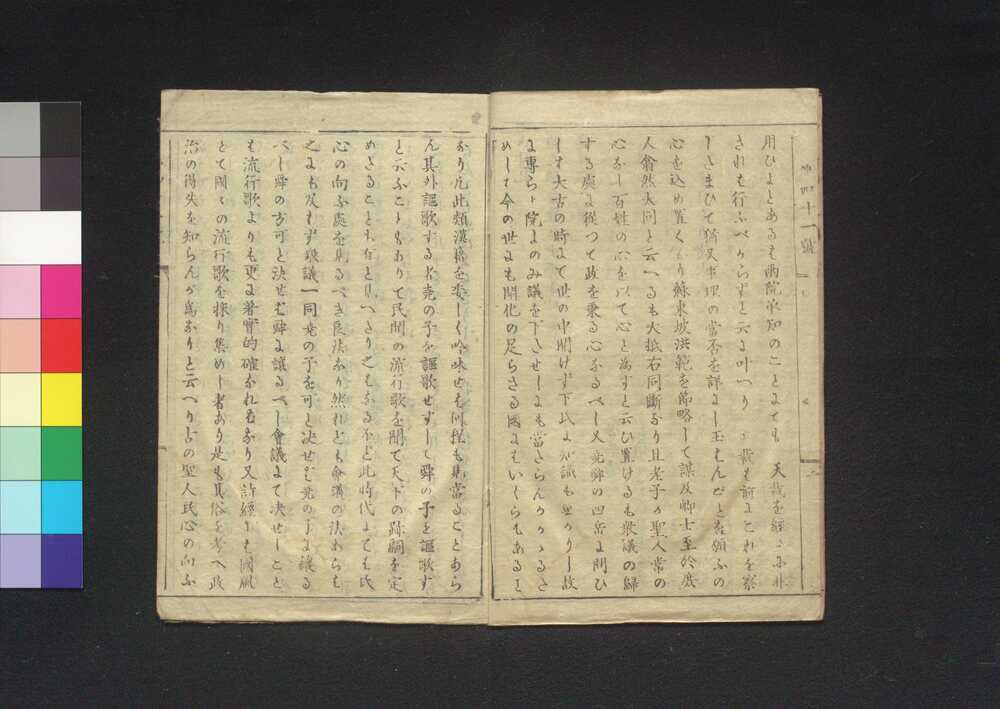 四十一號
用ひよとあるも両院承知のことにても 天裁を經
されは行ふへからすと云に叶へり 裁も前にこれを察
しさまひて猶又事理の當否を詳に
心を込め置くより蘇東坡洪範を節略して謀及卿士至於庶
人翕然大同と云へるも大抵右同斷なり且老子か聖人常の
心なし百姓の心を以て心と為すと云ひ置けるも衆議の歸
する處に從つて政を乗る心なるへし又堯舜の四岳に問ひ
しは大古の時にて世の中開けす下民に知識も無かりし故
に專ら上院にのみ議を下させしにも當さらんかかゝるさ
めしは今の世にも開化の足らさる國にはいくらもあると
なり凡此類漢籍を委しく吟味せは何程も見當ることあら
ん其外謳歌する者堯の子を謳歌せすして舜の子を謳歌す
と云ふこともありて民間の流行歌を聞て天下の跡嗣を定
めさることも有と見へたり之もなるほど此時代にては民
心の向ふ處を見るへき良法なり然れども會議の法あらは
之にも及はす衆議一同堯の子を可と決せは堯の子に讓る
へし舜の方可と決せは舜に讓るへし會議にて決せしこと
は流行歌よりも更に著實的確なれはなり又詩經には國風
とて國々の流行歌を採り集めし者あり是も其俗を考へ政
治の得失を知らんか為なりと云へり古の聖人民心の向ふ